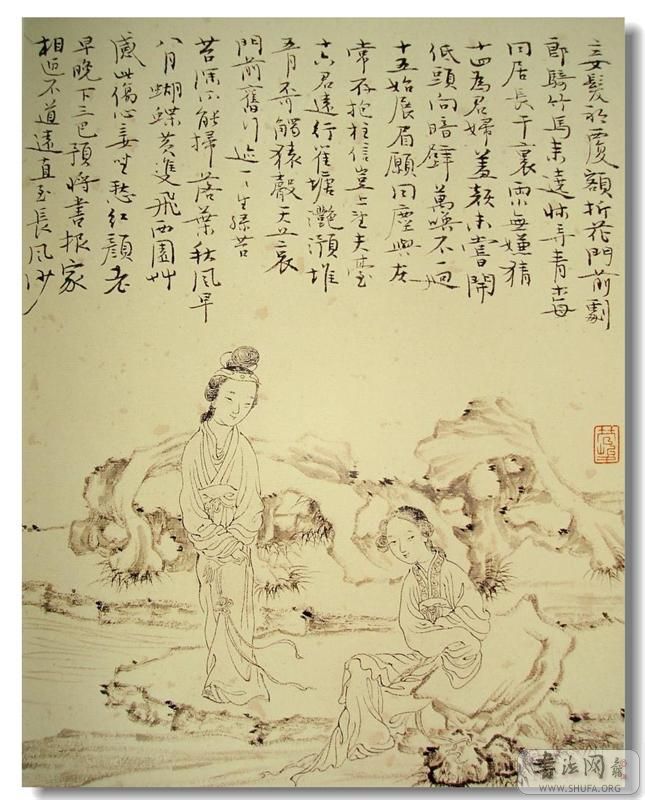 妾髮初覆額折花門前劇
郎騎竹馬來遶牀弄青梅
同居長干裏兩無嫌猜
十四為君婦羞顏未嘗開
低頭向暗壁萬喚不一迴
十五始展眉願同塵與灰
常存抱柱信豈上望夫臺
十六君遠行瞿塘灩澦堆
五月不可觸猿聲天上哀
門前舊行迹一一生綠苔
苔深不能掃落葉秋風早
八月蝴蝶黃雙飛西園艸
感此傷心妾坐愁紅顏老
早晚下三巴預將書報家
相迎不道遠直至長風沙
书法网
WWW.SHUFA.ORG